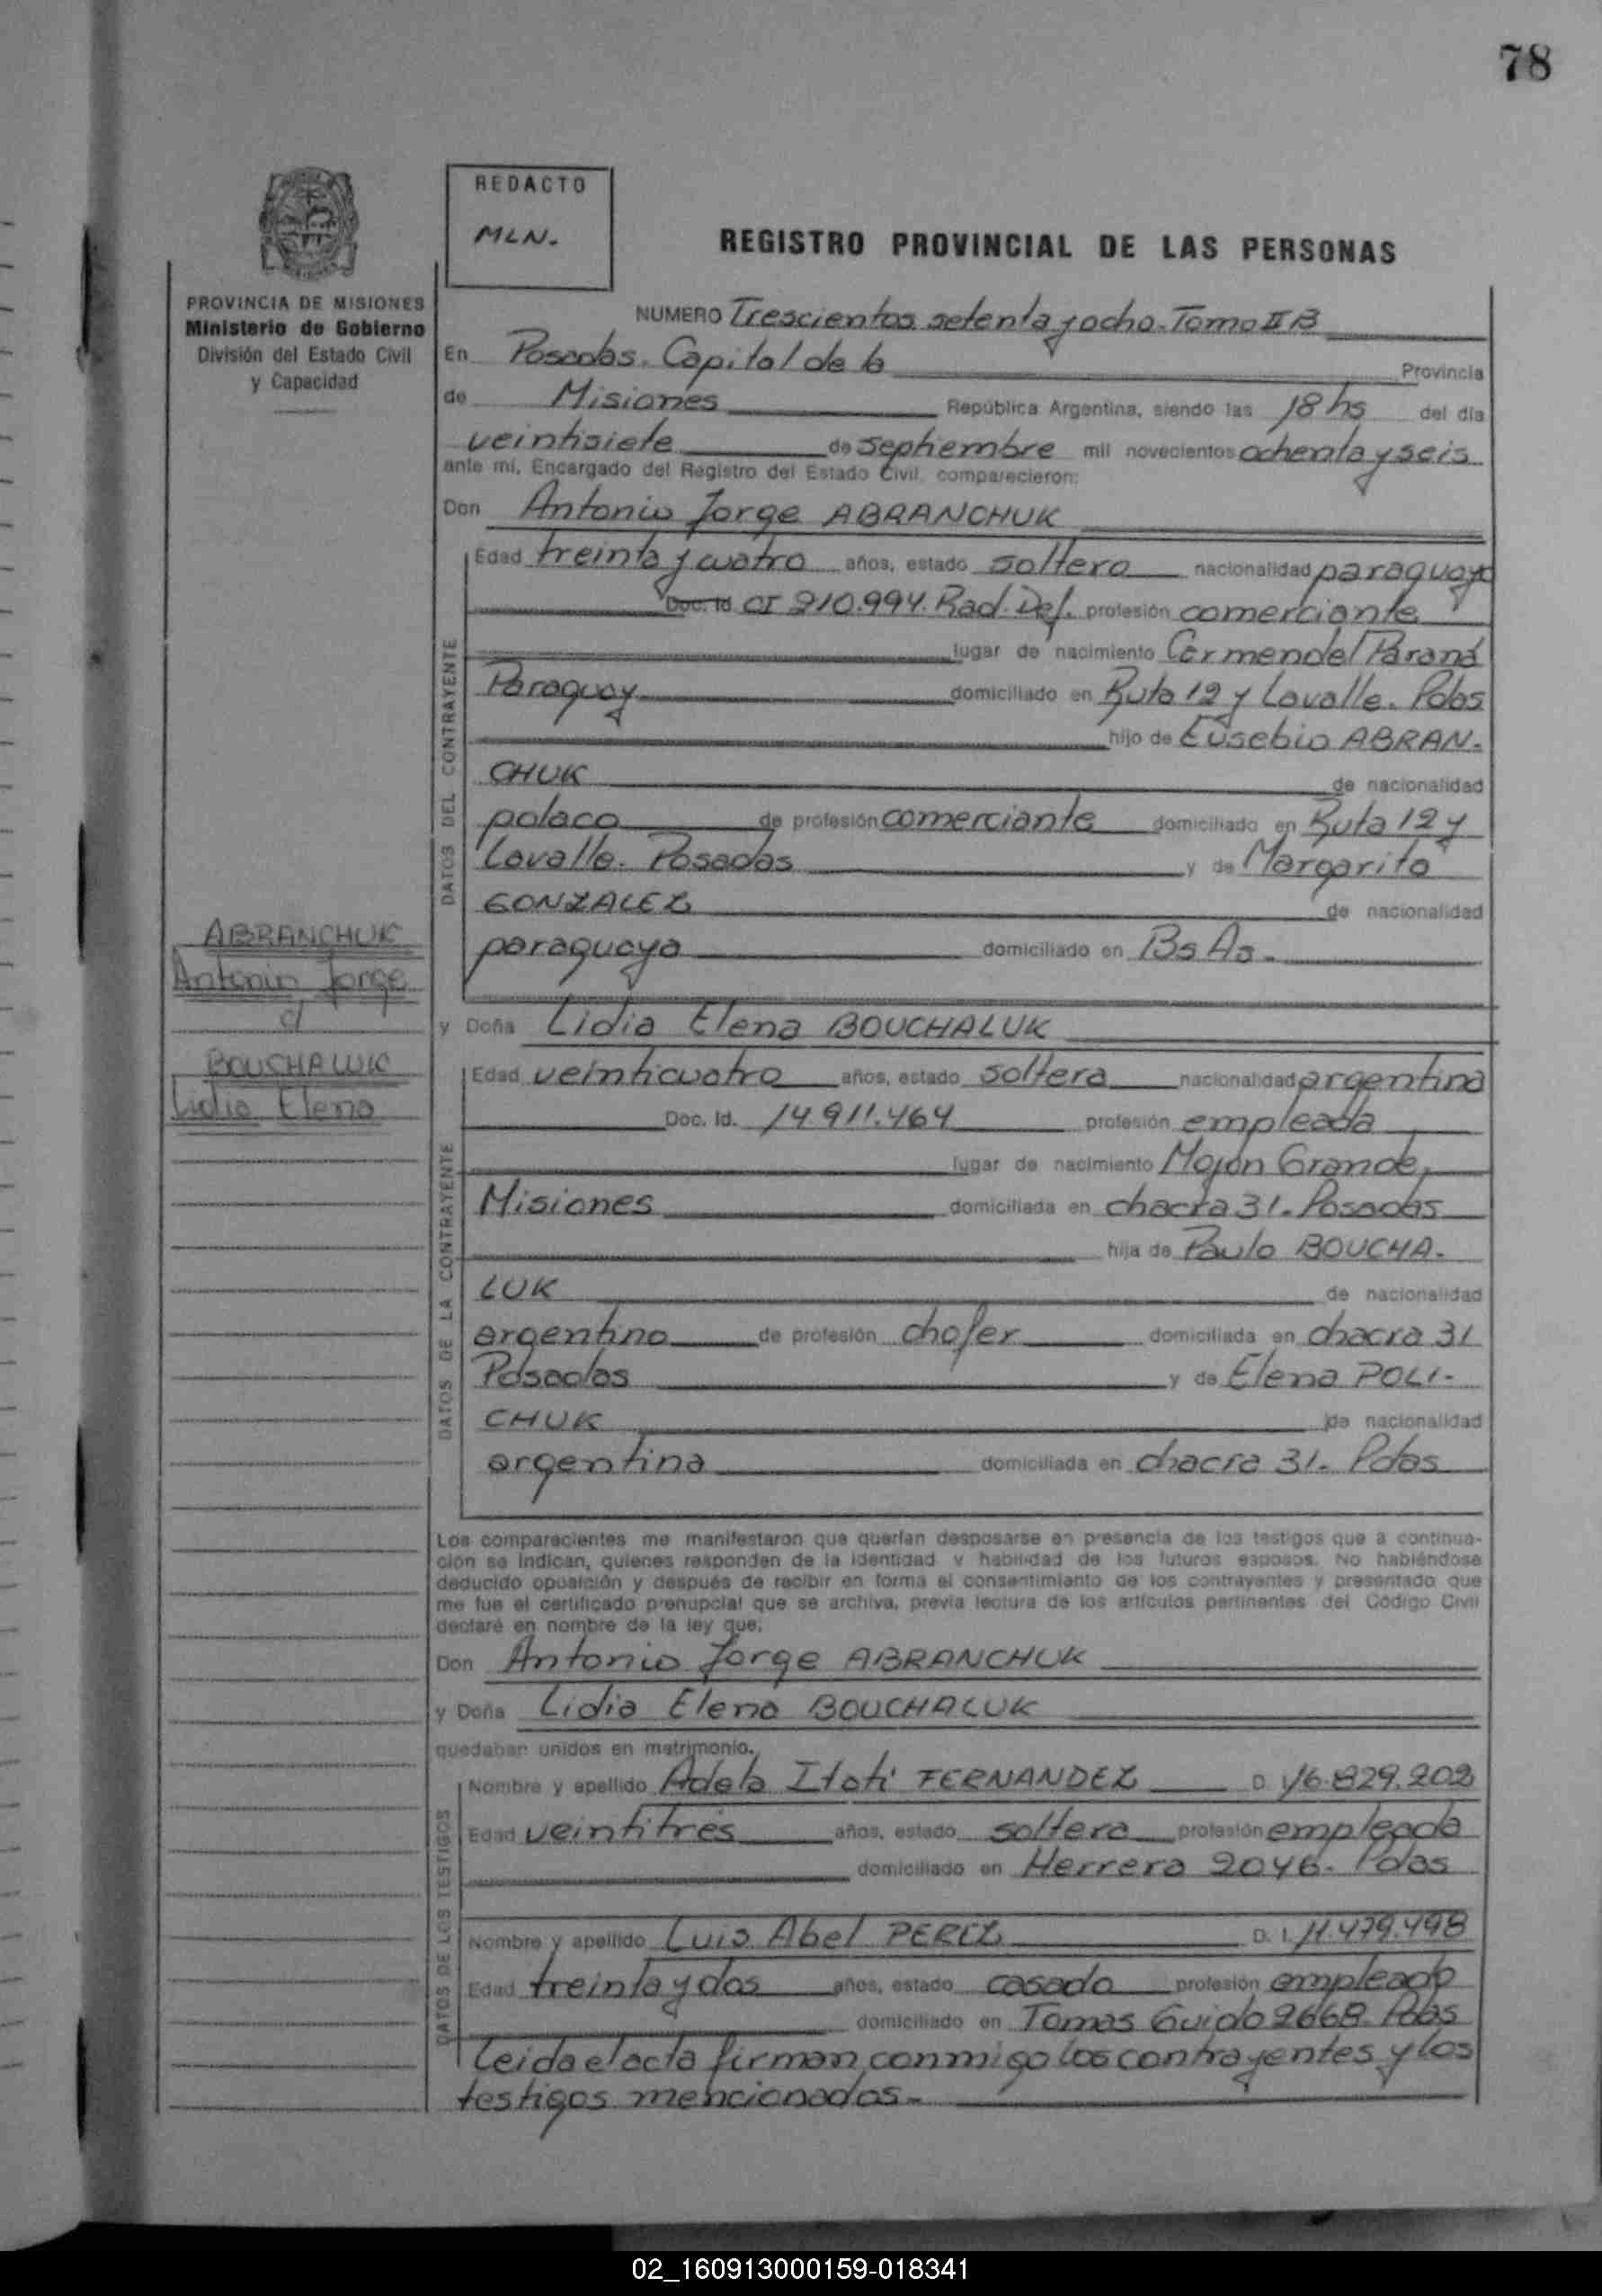 78
REDACTO
MLN.
REGISTRO PROVINCIAL DE LAS PERSONAS
PROVINCIA DE MISIONES
Ministerio de Gobierno
División del Estado Civil
y Capacidad
NUMERO Trescientos setenta y ocho. Tomo II B
En Posadas. Capital de la Provincia
de Misiones República Argentina, siendo las 18 hs del día
veintisiete de septiembre mil novecientos ochenta y seis
ante mí, Encargado del Registro del Estado Civil, comparecieron:
Don Antonio Jorge ABRANCHUK
DATOS DEL CONTRAYENTE
Edad treinta y cuatro años, estado soltero nacionalidad paraguayo
Doc. Id CI 210.994. Rad. Def. profesión comerciante
lugar de nacimiento Carmen del Paraná
Paraguay domiciliado en Ruta 12 y Lavalle. Pdas
hijo de Eusebio ABRAN.
CHUK de nacionalidad
polaco de profesión comerciante domiciliado en Ruta 12 y
Lavalle. Posadas y de Margarita
GONZALEZ de nacionalidad
paraguaya domiciliado en Bs As.
ABRANCHUK
Antonio Jorge
c/
BOUCHALUK
Lidia Elena
y Doña Lidia Elena BOUCHALUK
DATOS DE LA CONTRAYENTE
Edad veinticuatro años, estado soltera nacionalidad argentina
Doc. Id. 14.911.464 profesión empleada
lugar de nacimiento Mojón Grande,
Misiones domiciliada en chacra 31. Posadas
hija de Paulo BOUCHA.
LUK de nacionalidad
argentino de profesión chofer domiciliada en chacra 31
Posadas y de Elena POLI-
CHUK de nacionalidad
argentina domiciliada en chacra 31. Pdas
Los comparecientes me manifestaron que querían desposarse en presencia de los testigos que a continua-
ción se indican, quienes responden de la identidad y habilidad de los futuros esposos. No habiéndose
deducido oposición y después de recibir en forma el consentimiento de los contrayentes y presentado que
me fue el certificado prenupcial que se archiva, previa lectura de los artículos pertinentes del Código Civil
declaré en nombre de la ley que:
Don Antonio Jorge ABRANCHUK
y Doña Lidia Elena BOUCHALUK
quedaban unidos en matrimonio.
DATOS DE LOS TESTIGOS
Nombre y apellido Adela Itatí FERNANDEZ D. I 16.829.202
Edad veintitrés años, estado soltera profesión empleada
domiciliado en Herrera 2046. Pdas
Nombre y apellido Luis Abel PEREZ D. I. 11.479.498
Edad treinta y dos años, estado casado profesión empleado
domiciliado en Tomas Guido 2668. Pdas
Leida el acta firman conmigo los contrayentes y los
testigos mencionados.-
02_160913000159-018341